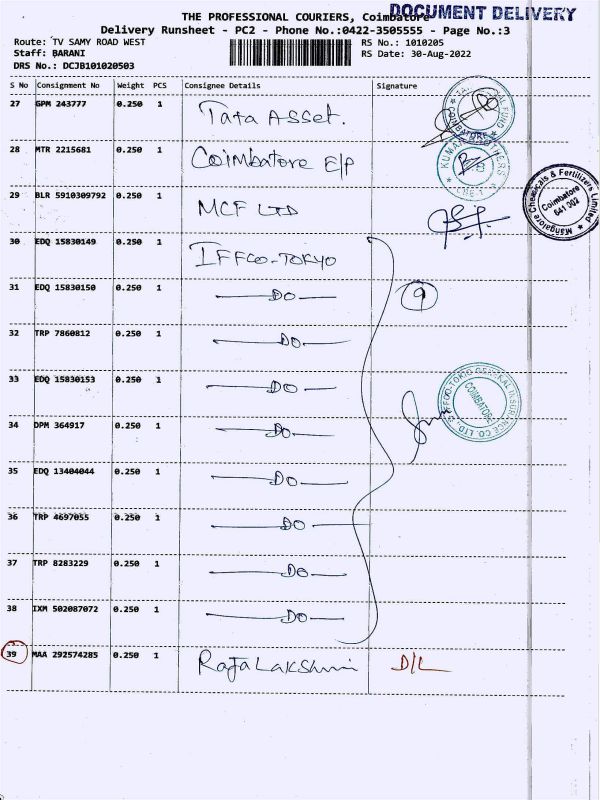 DOCUMENT DELIVERY
THE PROFESSIONAL COURIERS, Coimbatore
Delivery Runsheet - PC2 - Phone No.:0422-3505555 - Page No.:3
Route: TV SAMY ROAD WEST RS No.: 1010205
Staff: BARANI RS Date: 30-Aug-2022
DRS No.: DCJB101020503
S No Consignment No Weight PCS Consignee Details Signature
27 GPM 243777 0.250 1 Tata Asset.
28 MTR 2215681 0.250 1 Coimbatore E/P
KUMARAN BROTHERS
CBE-1
29 BLR 5910309792 0.250 1 MCF LTD
Mangalore Chemicals & Fertilizers Limited
Coimbatore
641 002
30 EDQ 15830149 0.250 1 IFFCO-TOKYO
31 EDQ 15830150 0.250 1 DO 9
32 TRP 7860812 0.250 1 DO
33 EDQ 15830153 0.250 1 DO
IFFCO-TOKIO GENERAL INSURANCE CO. LTD.,
COIMBATORE
34 DPM 364917 0.250 1 DO
35 EDQ 13404044 0.250 1 DO
36 TRP 4697055 0.250 1 DO
37 TRP 8283229 0.250 1 DO
38 IXM 502087072 0.250 1 DO
39 MAA 292574285 0.250 1 RajaLakshmi D/L